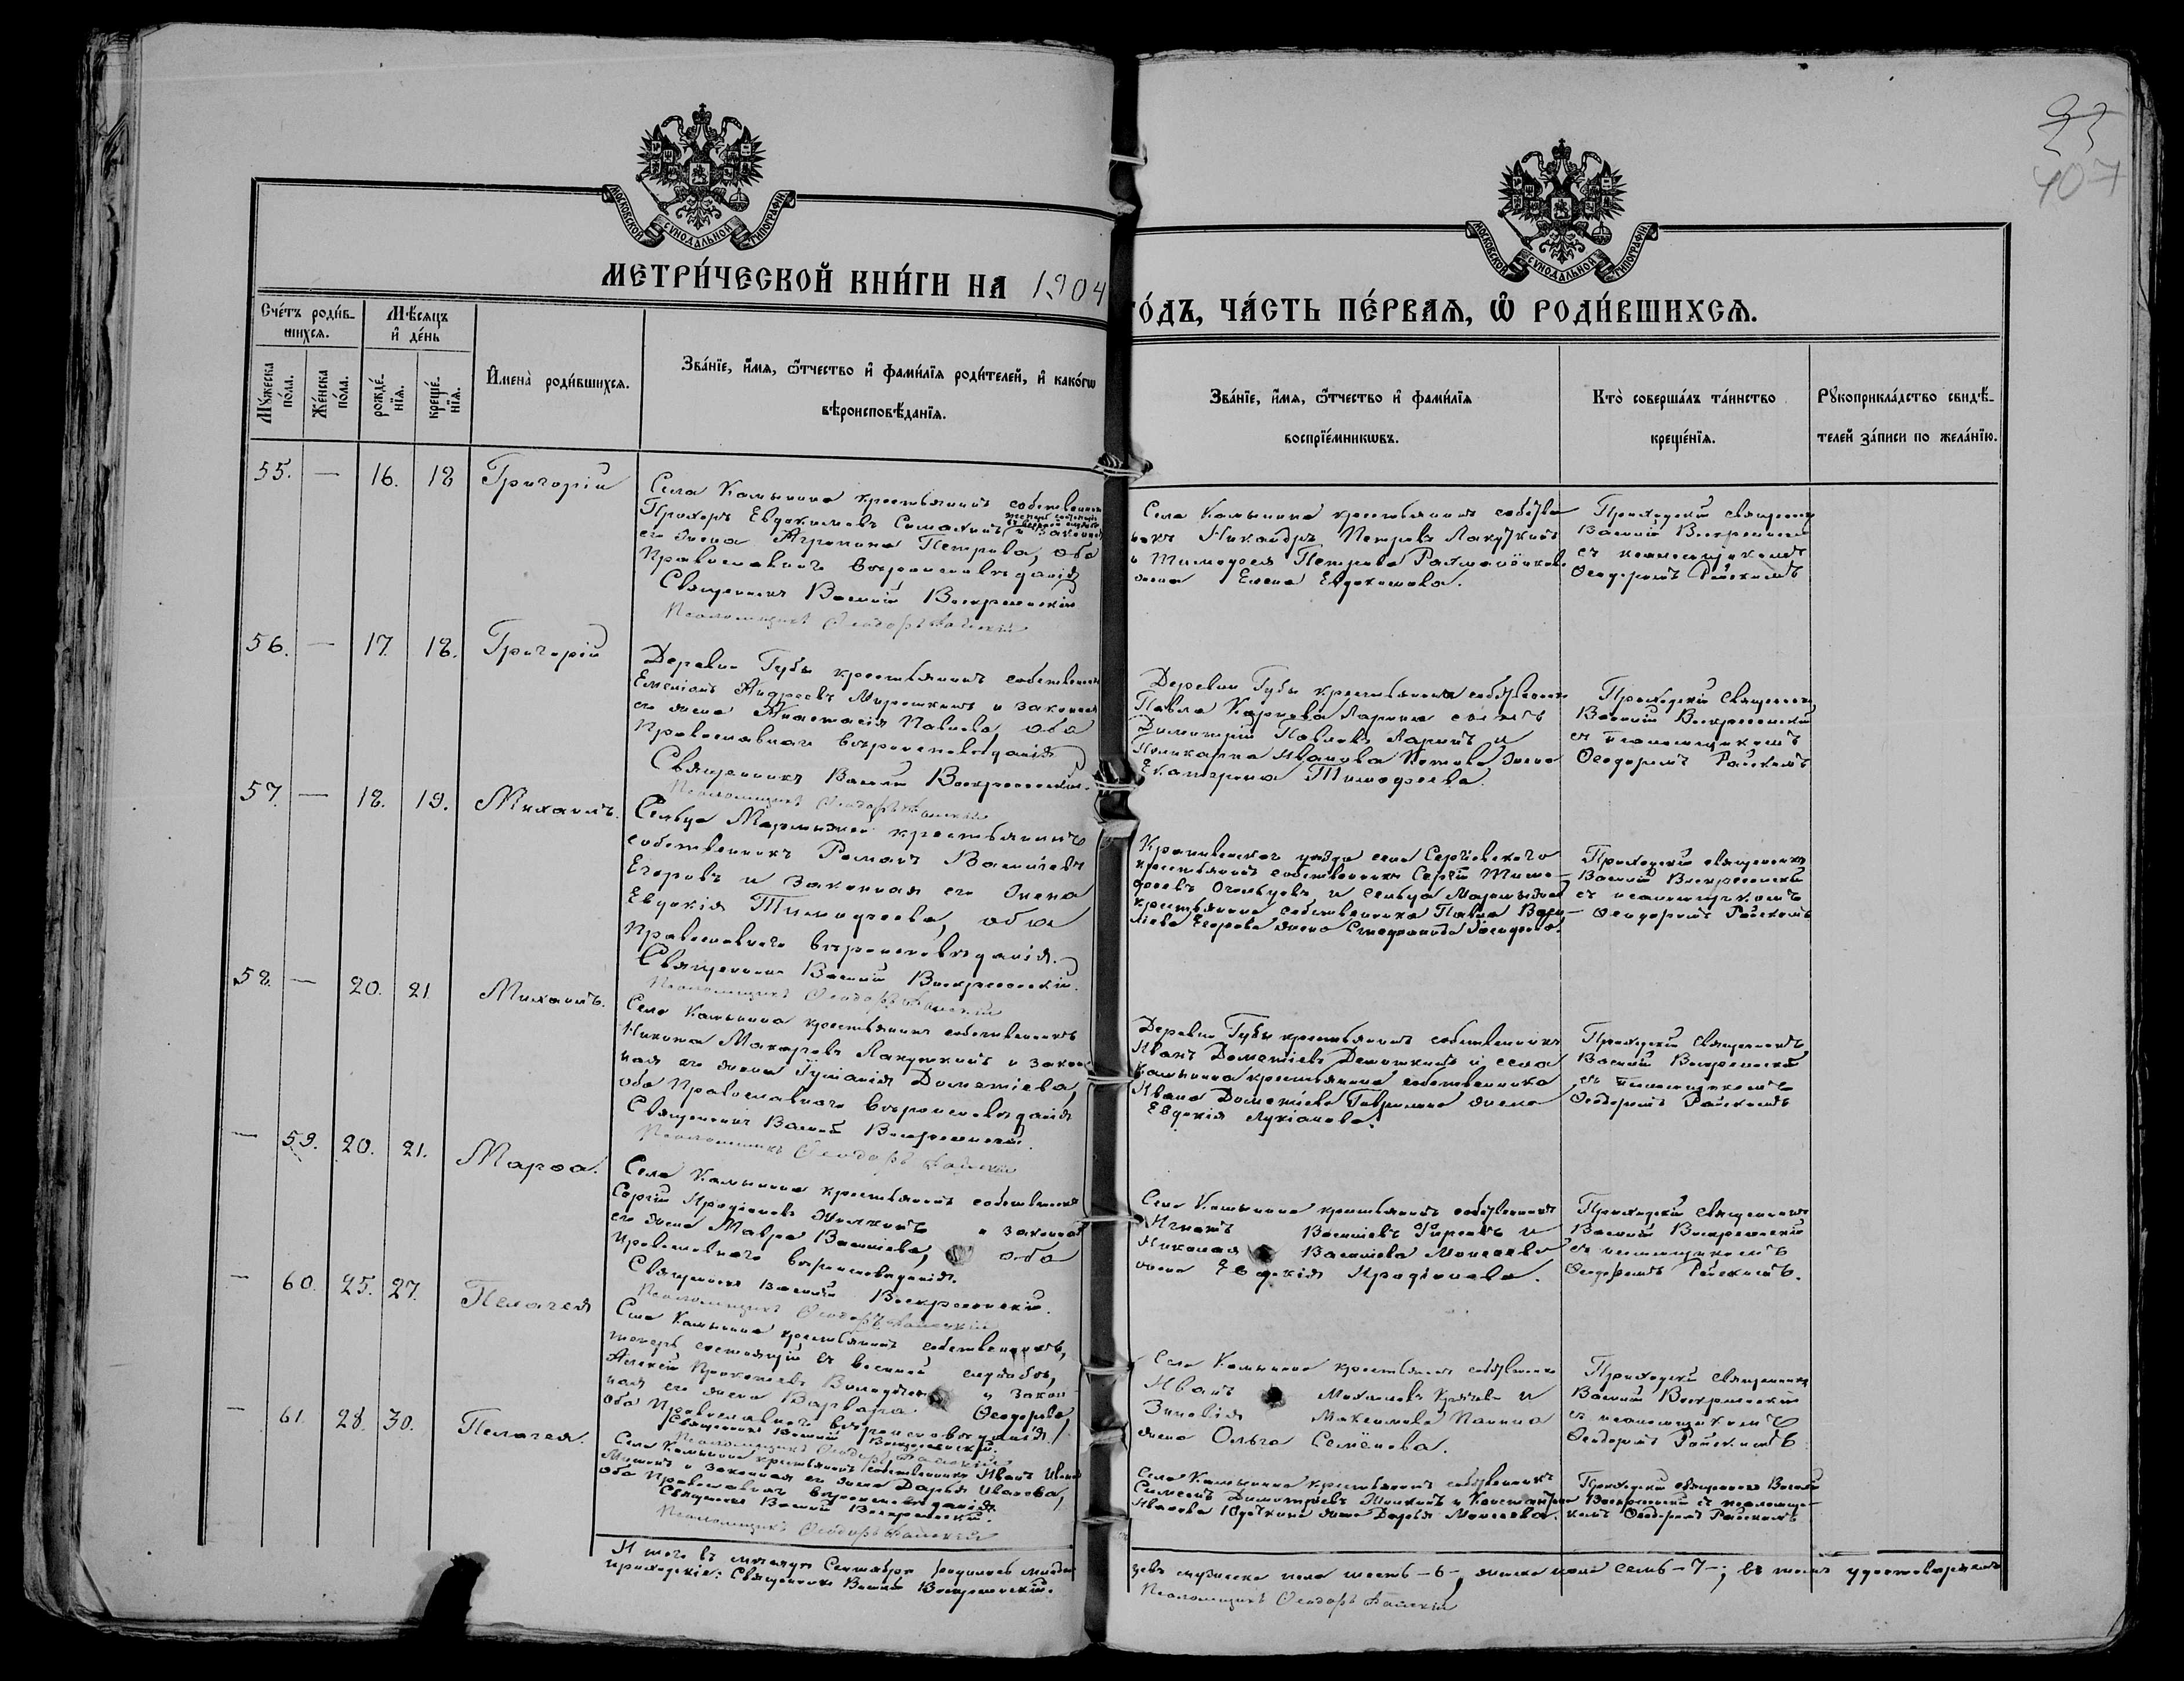 93
407
МОСКОВСКОЙ СѴНОДАЛЬНОЙ ТИПОГРАФІИ
МОСКОВСКОЙ СѴНОДАЛЬНОЙ ТИПОГРАФІИ
МЕТРИ́ЧЕСКОЙ КНИ́ГИ НА 1904
ГО́ДЪ, ЧА́СТЬ ПЕ́РВАЯ, Ѽ РОДИ́ВШИХСЯ.
Сче́тъ роди́в-
шихся.
Мѣ́сяцъ
и҆ де́нь
Мꙋ́жеска
по́ла.
Же́нска
по́ла.
рожде́-
нїя.
креще́-
нїя.
И҆мена̀ роди́вшихся.
Зва́нїе, и҆́мя, ѻ҆́тчество и҆ фами́лїя роди́телей, и҆ како́гѡ
вѣроисповѣ́данїя.
Зва́нїе, и҆́мя, ѻ҆́тчество и҆ фами́лїя
воспрїе́мникѡвъ.
Кто̀ соверша́лъ та́инство
креще́нїя.
Рꙋкоприкла́дство свидѣ́-
телей за́писи по жела́нїю.
55. — 16. 18 Григорій
Села Камынина крестьянинъ собственникъ
Прохоръ Евдокимовъ
его жена Агрипина Петрова, оба
Православнаго вѣроисповѣданія
Священникъ Василій Воскресенскій
Псаломщикъ Ѳеодоръ Райскій
Села Камынина крестьянинъ собствен
никъ Никандръ Петровъ Лакуцкій
и Тимофея Петрова
жена Елена Евдокимова.
Приходскій священникъ
Василій Воскресенскій
съ псаломщикомъ
Ѳеодоромъ Райскимъ
56. — 17. 18. Григорій
Деревни Губы крестьянинъ собственникъ
Емеліанъ Андреевъ Мирошкинъ и законная
его жена Анастасія Павлова, оба
Православнаго вѣроисповѣданія
Священникъ Василій Воскресенскій.
Псаломщикъ Ѳеодоръ Райскій
Деревни Губы крестьянина собственника
Павла Карпова Ларина сынъ
Димитрій Павловъ Ларинъ и
Поликарпа Иванова жена
Екатерина Тимофеева.
Приходскій Священникъ
Василій Воскресенскій
съ псаломщикомъ
Ѳеодоромъ Райскимъ
57. — 18. 19. Михаилъ.
Сельца крестьянинъ
собственникъ Романъ Васильевъ
Егоровъ и законная его жена
Евдокія Тимофеева, оба
Православнаго вѣроисповѣданія.
Священникъ Василій Воскресенскій.
Псаломщикъ Ѳеодоръ Райскій
Крапивенскаго уѣзда села Сергіевскаго
крестьянинъ собственникъ Сергій Тимо-
феевъ Огольцовъ и сельца
крестьянина собственника Павла Васи-
льева Егорова жена
Приходскій священникъ
Василій Воскресенскій
съ псаломщикомъ
Ѳеодоромъ Райскимъ
58. — 20. 21. Михаилъ.
Села Камынина крестьянинъ собственникъ
Никита Макаровъ Лакуцкій и закон
ная его жена Іуліанія Дометіева,
оба Православнаго вѣроисповѣданія
Священникъ Василій Воскресенскій.
Псаломщикъ Ѳеодоръ Райскій
Деревни Губы крестьянинъ собственникъ
Иванъ Дометіевъ и села
Камынина крестьянина собственника
Ивана Дометіева Гаврилина жена
Евдокія Лукіанова.
Приходскій священникъ
Василій Воскресенскій
съ псаломщикомъ
Ѳеодоромъ Райскимъ
— 59. 20. 21. Марѳа.
Села Камынина крестьянинъ собственникъ
Сергій Иродіоновъ и законная
его жена Мавра Васильева, оба
Православнаго вѣроисповѣданія.
Священникъ Василій Воскресенскій.
Псаломщикъ Ѳеодоръ Райскій
Села Камынина крестьянинъ собственникъ
Игнатъ Васильевъ и
Николая Васильева Моисеева
жена Евдокія Иродіонова.
Приходскій Священникъ
Василій Воскресенскій
съ псаломщикомъ
Ѳеодоромъ Райскимъ.
— 60. 25. 27. Пелагея
Села Камынина крестьянинъ собственникъ,
теперь состоящій въ военной службѣ,
Алексій Прокопіевъ и закон
ная его жена Варвара Ѳеодорова,
оба Православнаго вѣроисповѣданія.
Священникъ Василій Воскресенскій.
Псаломщикъ Ѳеодоръ Райскій
Села Камынина крестьянинъ собственникъ
Иванъ Михаиловъ и
Зиновія Максимова Панина
жена Ольга Семёнова.
Приходскій Священникъ
Василій Воскресенскій
съ псаломщикомъ
Ѳеодоромъ Райскимъ
— 61. 28. 30. Пелагея.
Села Камынина крестьянинъ собственникъ Иванъ
и законная его жена Дарья Иванова,
оба Православнаго вѣроисповѣданія
Священникъ Василій Воскресенскій.
Псаломщикъ Ѳеодоръ Райскій
Села Камынина крестьянинъ собственникъ
Симеонъ Димитріевъ и Константина
Иванова жена Дарья Моисеева.
Приходскій священникъ Василій
Воскресенскій съ псаломщи-
комъ Ѳеодоромъ Райскимъ
Итого въ мѣсяцѣ Сентябрѣ родилось младен
цевъ мужеска пола шесть -6-, женска пола семь -7-; въ томъ удостовѣряемъ
приходскіе: Священникъ Василій Воскресенскій.
Псаломщикъ Ѳеодоръ Райскій